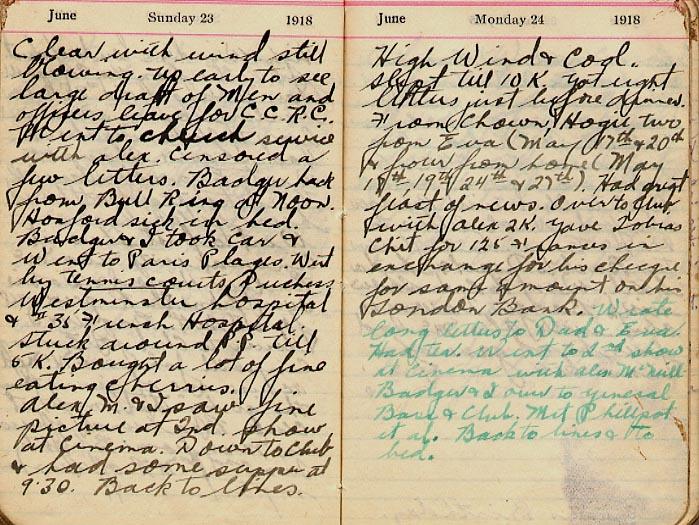 June Sunday 23 1918
Clear with wind still
blowing. Up early to see
large draft of Men and
officers leave for C.C.R.C.
Went to church service
with alex. Censored a
few letters. Badger back
from Bull Ring at Noon.
Hosford sick in bed.
Badger & I took car &
Went to Paris Plages. Went
by tennis courts Duchess
Westminster hospital
& #35 French Hospital.
Stuck around P.P. till
5 K. Bought a lot of fine
eating cherries.
alex M. & I saw fine
picture at 2nd show
at Cinema. Down to Club
& had some supper at
9.30. Back to lines.
June Monday 24 1918
High Wind & Cool.
Slept till 10 K. Got eight
letters just before dinner.
From Chown, Hogie two
from Eva (May 17th & 20th
& four from home (May
18th, 19th, 24th & 27th). Had great
feast of news. Over to Club
with alex 2K. Gave Tobias
Chit for 125 francs in
exchange for his cheque
for same amount on his
London Bank. Wrote
long letters to Dad & Eva.
Had tea. Went to 2nd show
at Cinema with alex McNeill
Badger & I over to general
Base & Club. Met Phillpot
et al. Back to lines & to
bed.